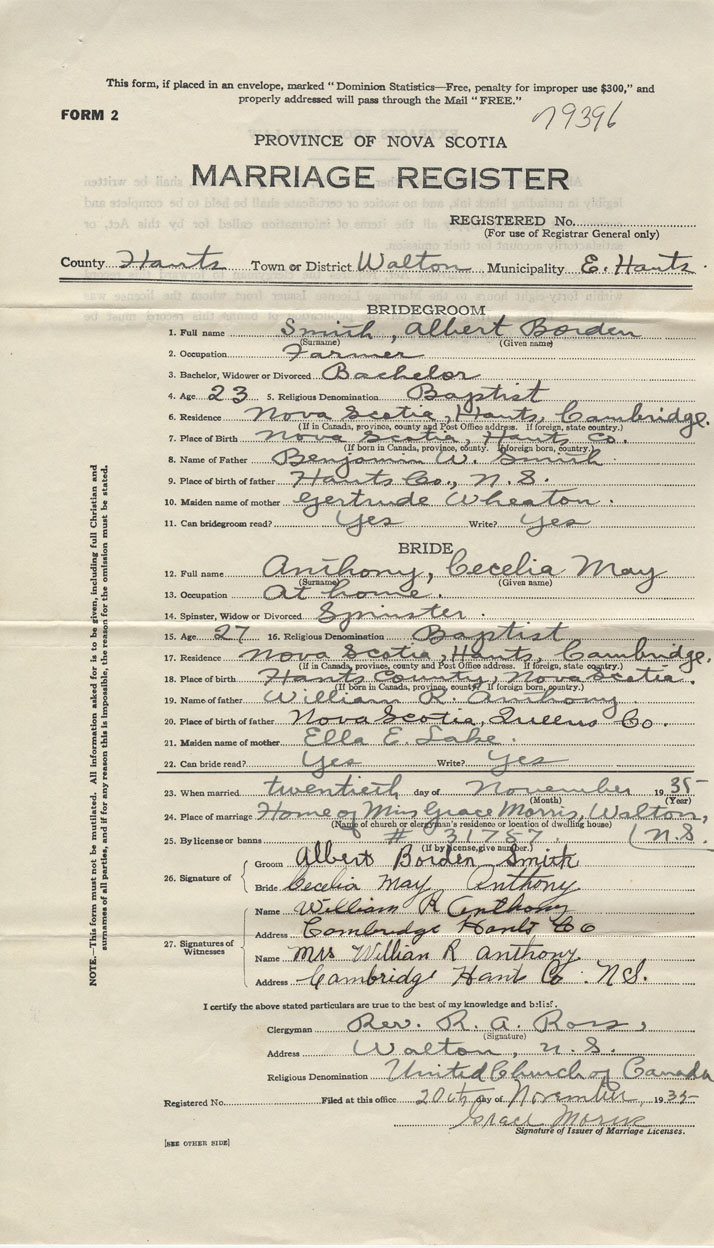 This form, if placed in an envelope, marked "Dominion Statistics—Free, penalty for improper use $300," and
properly addressed will pass through the Mail "FREE."
FORM 2
79396
PROVINCE OF NOVA SCOTIA
MARRIAGE REGISTER
REGISTERED No.
(For use of Registrar General only)
County Hants Town or District Walton Municipality E. Hants.
BRIDEGROOM
1. Full name Smith, Albert Borden
(Surname) (Given name)
2. Occupation Farmer
3. Bachelor, Widower or Divorced Bachelor
4. Age 23 5. Religious Denomination Baptist
6. Residence Nova Scotia, Hants, Cambridge.
(If in Canada, province, county and Post Office address. If foreign, state country.)
7. Place of Birth Nova Scotia, Hants Co.
(If born in Canada, province, county. If foreign born, country.)
8. Name of Father Benjamin W. Smith
9. Place of birth of father Hants Co., N.S.
10. Maiden name of mother Gertrude Wheaton.
11. Can bridegroom read? Yes Write? Yes
BRIDE
12. Full name Anthony, Cecelia May
(Surname) (Given name)
13. Occupation At home.
14. Spinster, Widow or Divorced Spinster.
15. Age 27 16. Religious Denomination Baptist
17. Residence Nova Scotia, Hants, Cambridge.
(If in Canada, province, county and Post Office address. If foreign, state country.)
18. Place of birth Hants County, Nova Scotia.
(If born in Canada, province, county. If foreign born, country.)
19. Name of father William R. Anthony
20. Place of birth of father Nova Scotia, Queens Co.
21. Maiden name of mother Ella E. Lake.
22. Can bride read? Yes Write? Yes
23. When married twentieth day of November 1935
(Month) (Year)
24. Place of marriage Home of Miss Grace Morris, Walton,
(Name of church or clergyman's residence or location of dwelling house)
N.S.
25. By license or banns # 31787.
(If by license, give number.)
26. Signature of
Groom Albert Borden Smith
Bride Cecelia May Anthony
27. Signatures of Witnesses
Name William R Anthony
Address Cambridge Hants Co
Name Mrs William R Anthony
Address Cambridge Hants Co. N.S.
I certify the above stated particulars are true to the best of my knowledge and belief.
Clergyman Rev. R. A. Ross,
(Signature)
Address Walton, N.S.
Religious Denomination United Church of Canada
Registered No. Filed at this office 20th day of November, 1935
Grace Morris
Signature of Issuer of Marriage Licenses.
[SEE OTHER SIDE]
NOTE.—This form must not be mutilated. All information asked for is to be given, including full Christian and
surnames of all parties, and if for any reason this is impossible, the reason for the omission must be stated.